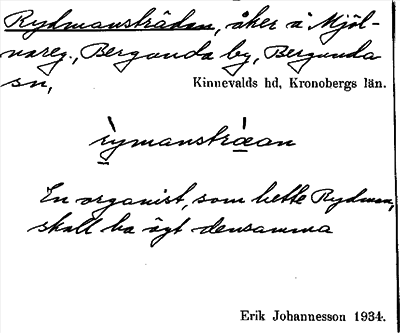 Rydmansträdan, åker å Mjöl-
nareg., Bergunda by, Bergunda
sn, Kinnevalds hd, Kronobergs län.
rymansträan
En organist, som hette Rydman,
skall ha ägt densamma
Erik Johannesson 1934.